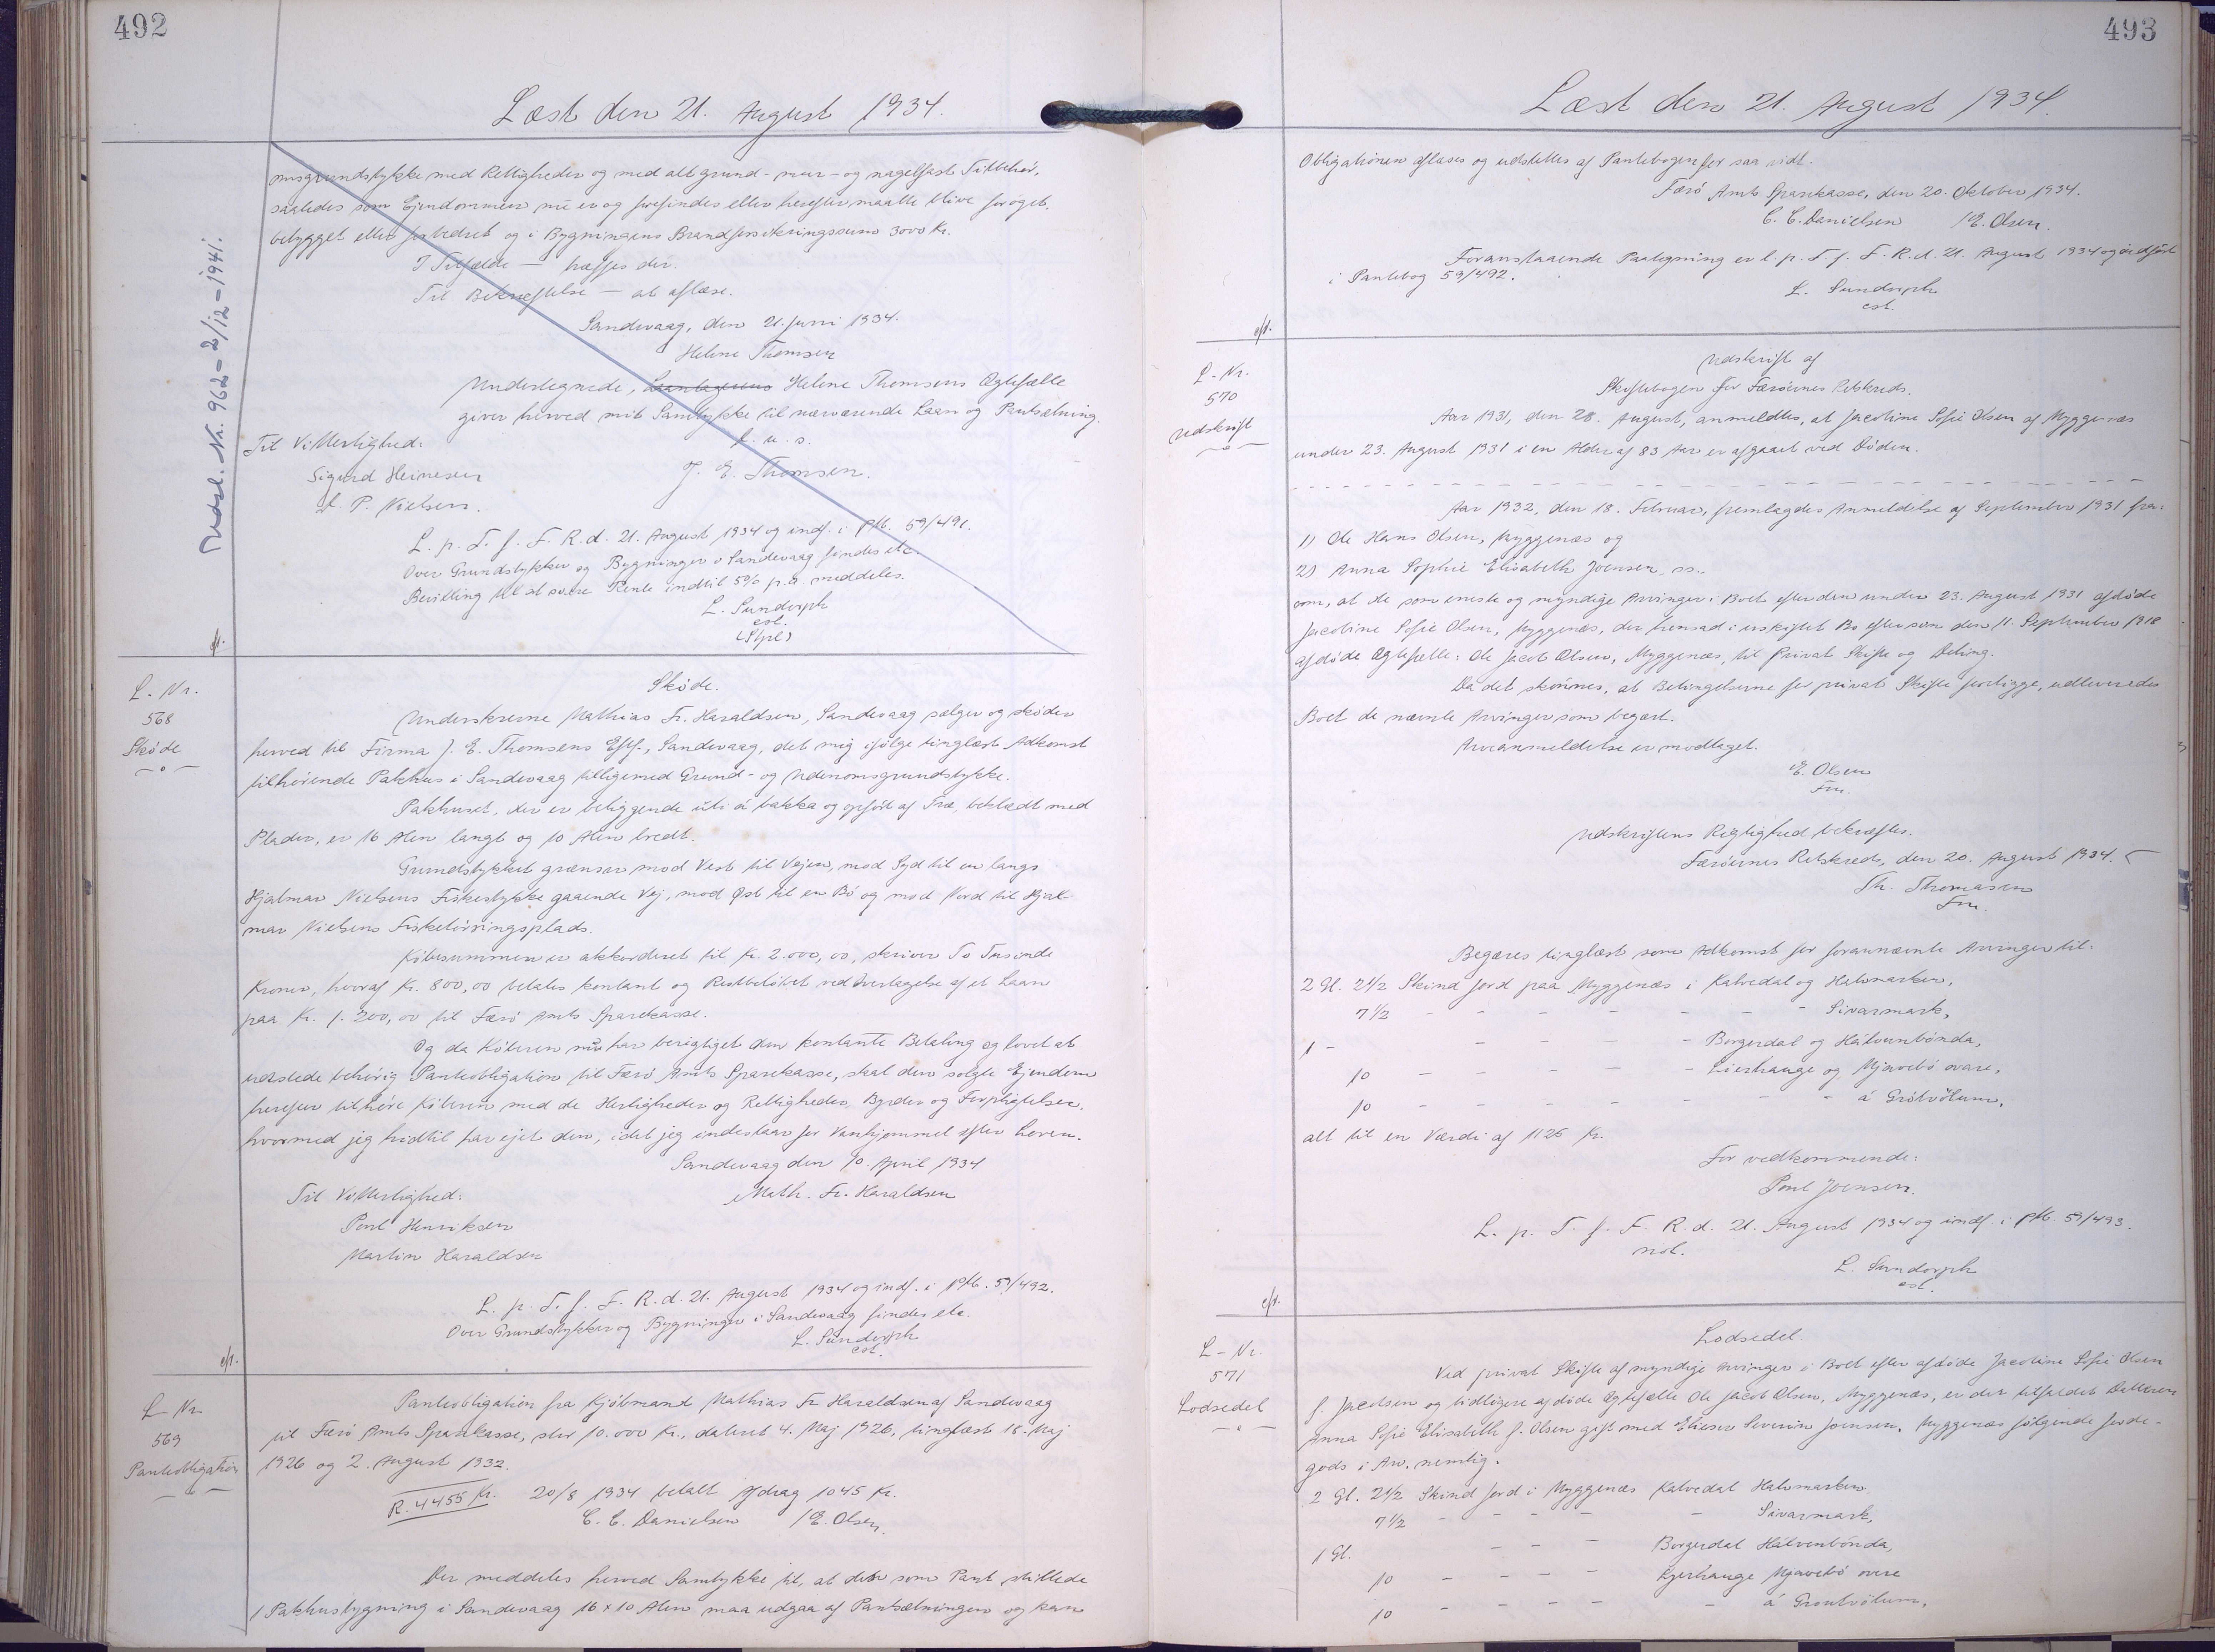 492
Læst den 21. August 1934.
omsgrundstykke med Rettigheder og med alt grund- mur- og nagelfast Tilbehør,
saaledes som Ejendommen nu er og forefindes eller herefter maatte blive forøget,
bebygget eller forbedret og i Bygningens Brandforsikringssum 3000 Kr.
I Tilfælde — træffes der.
Til Bekræftelse — at aflæse.
Sandevaag, den 21. Juni 1934.
Helene Thomsen
Undertegnede, Helene Thomsens Ægtefælle
giver herved mit Samtykke til nærværende Laan og Pantsætning.
Til Vitterlighed: d. u. s.
Sigurd Heinesen J. E. Thomsen.
J. P. Nielsen.
L. p. T. f. F. R. d. 21. August 1934 og indf. i Ptb. 59/491.
Over Grundstykker og Bygninger i Sandevaag findes etc.
Bevilling til at svare Rente indtil 5% p.a. meddeles.
L. Sundorph
cst.
(Stpl)
Udsl. Nr. 962 = 2/12 = 1941.
eft.
L. Nr.
568
Skøde
Skøde.
Underskrevne Mathias Fr. Haraldsen, Sandevaag sælger og skøder
herved til Firma J. E. Thomsens Eftf., Sandevaag, det mig ifølge tinglæst Adkomst
tilhørende Pakhus i Sandevaag tilligemed Grund- og Udenomsgrundstykke.
Pakhuset, der er beliggende úti á bakka og opført af Træ, beklædt med
Plader, er 16 Alen langt og 10 Alen bredt.
Grundstykket grænser mod Vest til Vejen, mod Syd til en langs
Hjalmar Nielsens Fiskestykke gaaende Vej, mod Øst til en Bø og mod Nord til Hjal-
mar Nielsens Fisketørringsplads.
Købesummen er akkorderet til Kr. 2.000,00, skriver To Tusinde
Kroner, hvoraf Kr. 800,00 betales kontant og Restbeløbet ved Overtagelse af et Laan
paa Kr. 1.200,00 til Færø Amts Sparekasse.
Og da Køberen nu har berigtiget den kontante Betaling og lovet at
udstede behørig Panteobligation til Færø Amts Sparekasse, skal den solgte Ejendom
herefter tilhøre Køberen med de Herligheder og Rettigheder, Byrder og Forpligtelser,
hvormed jeg hidtil har ejet den, idet jeg indestaar for Vanhjemmel efter Loven.
Sandevaag den 10. April 1934
Til Vitterlighed: Math. Fr. Haraldsen
Poul Henriksen
Martin Haraldsen
L. p. T. f. F. R. d. 21. August 1934 og indf. i Ptb. 59/492.
Over Grundstykker og Bygninger i Sandevaag findes etc.
L. Sundorph
cst.
eft.
L. Nr.
569
Panteobligation
Panteobligation fra Kjøbmand Mathias Fr Haraldsen af Sandevaag
til Færø Amts Sparekasse, stor 10.000 Kr., dateret 4. Maj 1926, tinglæst 18. Maj
1926 og 2. August 1932.
R. 4455 Kr. 20/8 1934 betalt Afdrag 1045 Kr.
C. C. Danielsen /E. Olsen.
Der meddeles herved Samtykke til, at den som Pant stillede
1 Pakhusbygning i Sandevaag 16 x 10 Alen maa udgaa af Pantsætningen og kan
493
Læst den 21. August 1934.
Obligationen aflæses og udslettes af Pantebogen for saa vidt.
Færø Amts Sparekasse, den 20. Oktober 1934.
C. C. Danielsen /E. Olsen.
Foranstaaende Paategning er l. p. T. f. F. R. d. 21. August 1934 og indført
i Pantebog 59/492.
L. Sundorph
cst.
eft.
L. Nr.
570
Udskrift
Udskrift af
Skiftebogen for Færøernes Retskreds.
Aar 1931, den 28. August, anmeldtes, at Jacobine Sofie Olsen af Myggenæs
under 23. August 1931 i en Alder af 83 Aar er afgaaet ved Døden.
Aar 1932, den 18. Februar, fremlagdes Anmeldelse af September 1931 fra:
1) Ole Hans Olsen, Myggenæs og
2) Anna Sophie Elisabeth Joensen, ss.,
om, at de som eneste og myndige Arvinger i Boet efter den under 23. August 1931 afdøde
Jacobine Sofie Olsen, Myggenæs, der hensad i uskiftet Bo efter som den 11. September 1918
afdøde Ægtefælle: Ole Jacob Olsen, Myggenæs, til Privat Skifte og Deling.
Da det skønnes, at Betingelserne for privat Skifte foreligge, udleveredes
Boet de nævnte Arvinger som begært.
Arveanmeldelse er modtaget.
E. Olsen
Fm.
Udskriftens Rigtighed bekræftes.
Færøernes Retskreds, den 20. August 1934.
Th. Thomasen
Fm.
Begæres tinglæst som Adkomst for forannævnte Arvinger til:
2 Gl. 2½ Skind Jord paa Myggenæs i Kalvedal og Halsmarken,
7½ - - - - - - - Sivarmark,
1 - - - - - Borgerdal og Hálvunbónda,
10 - - - - - Lierhauge og Mjavebø ovare,
10 - - - - - - - á Grótvølum,
alt til en Værdi af 1125 Kr.
For vedkommende:
Poul Joensen.
L. p. T. f. F. R. d. 21. August 1934 og indf. i Ptb. 59/493.
not.
L. Sundorph
cst.
eft.
L-Nr.
571
Lodsedel
Lodsedel
Ved privat Skifte af myndige Arvinger i Boet efter afdøde Jacobine Sofie Olsen
f. Jacobsen og tidligere afdøde Ægtefælle Ole Jacob Olsen, Myggenæs, er der tilfaldet Datteren
Anna Sofie Elisabeth f. Olsen gift med Elieser Severin Joensen, Myggenæs følgende Jorde-
gods i Arv, nemlig.
2 Gl. 2½ Skind Jord i Myggenæs Kalvedal Halsmarken
7½ - - - - - Sivarmark,
1 Gl. - - - Borgerdal Hálvunbónda,
10 - - - - Mjavebø ovare
10 - - - - - á Groutvølum,